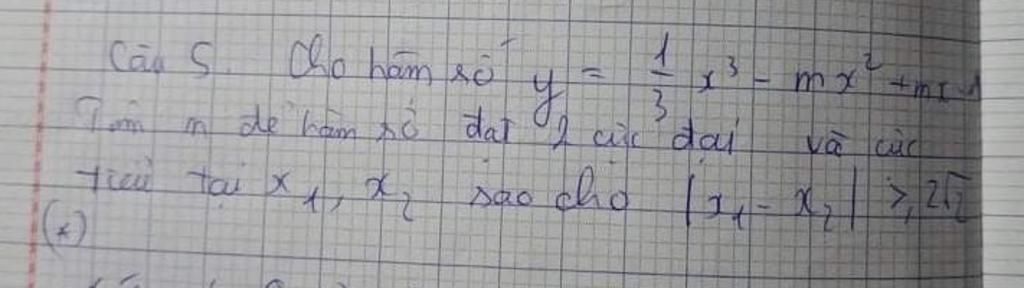 Câu 5. Cho hàm số y = \frac{1}{3}x³ - mx² + mx - 1
Tìm m để hàm số đạt 2 cực đại và cực
tiểu tại x₁, x₂ sao cho |x₁ - x₂| ≥ 2√2
(*)